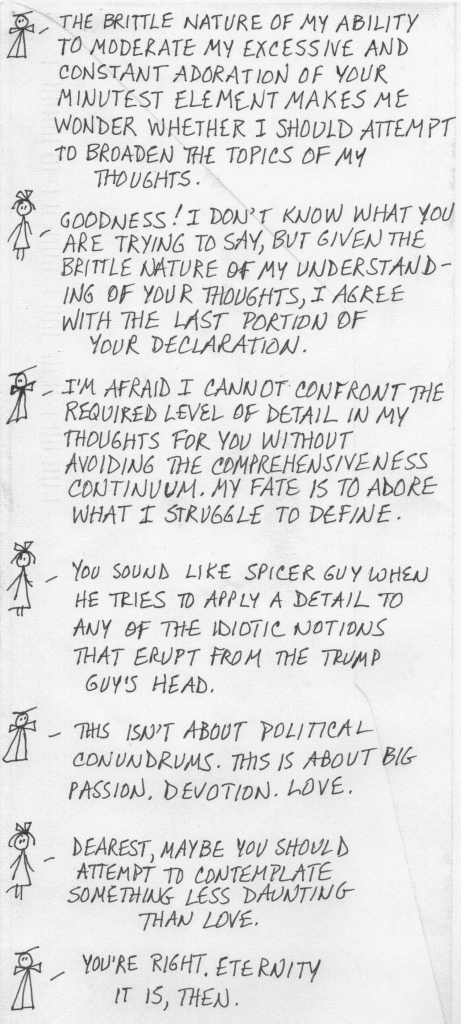 THE BRITTLE NATURE OF MY ABILITY
TO MODERATE MY EXCESSIVE AND
CONSTANT ADORATION OF YOUR
MINUTEST ELEMENT MAKES ME
WONDER WHETHER I SHOULD ATTEMPT
TO BROADEN THE TOPICS OF MY
THOUGHTS.
GOODNESS! I DON'T KNOW WHAT YOU
ARE TRYING TO SAY, BUT GIVEN THE
BRITTLE NATURE OF MY UNDERSTAND-
ING OF YOUR THOUGHTS, I AGREE
WITH THE LAST PORTION OF
YOUR DECLARATION.
I'M AFRAID I CANNOT CONFRONT THE
REQUIRED LEVEL OF DETAIL IN MY
THOUGHTS FOR YOU WITHOUT
AVOIDING THE COMPREHENSIVENESS
CONTINUUM. MY FATE IS TO ADORE
WHAT I STRUGGLE TO DEFINE.
YOU SOUND LIKE SPICER GUY WHEN
HE TRIES TO APPLY A DETAIL TO
ANY OF THE IDIOTIC NOTIONS
THAT ERUPT FROM THE TRUMP
GUY'S HEAD.
THIS ISN'T ABOUT POLITICAL
CONUNDRUMS. THIS IS ABOUT BIG
PASSION. DEVOTION. LOVE.
DEAREST, MAYBE YOU SHOULD
ATTEMPT TO CONTEMPLATE
SOMETHING LESS DAUNTING
THAN LOVE.
YOU'RE RIGHT. ETERNITY
IT IS, THEN.